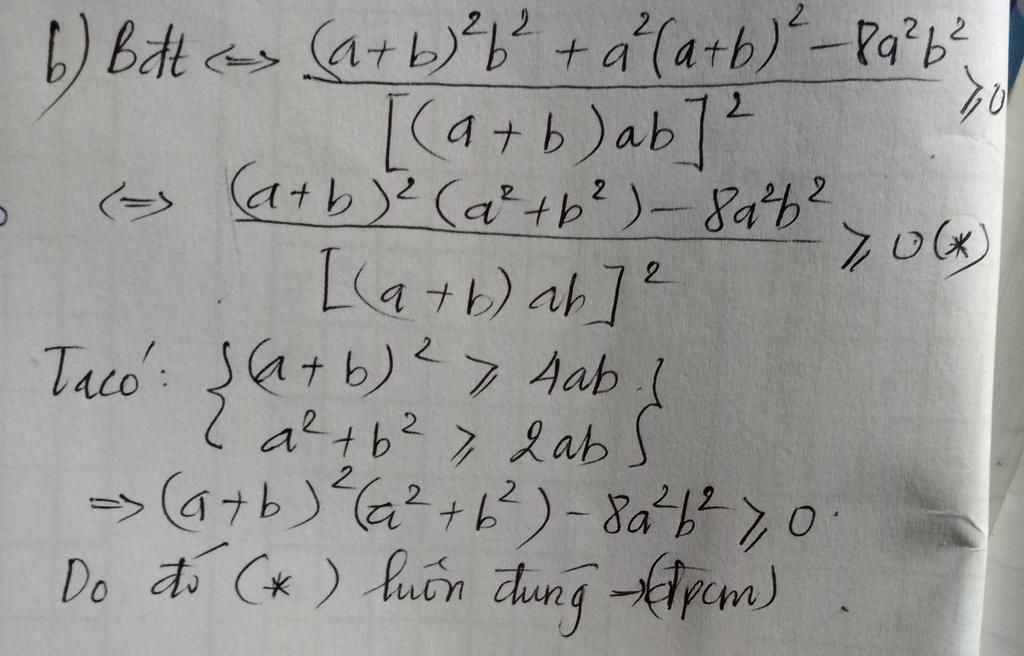 b) Bđt <=> (a+b)²b² + a²(a+b)² - 8a²b² / [(a+b)ab]² ⩾ 0
<=> (a+b)² (a²+b²) - 8a²b² / [(a+b) ab]² ⩾ 0 (*)
Ta có: { (a+b)² ⩾ 4ab }
{ a²+b² ⩾ 2ab }
=> (a+b)²(a²+b²) - 8a²b² ⩾ 0.
Do đó (*) luôn đúng → (đpcm)